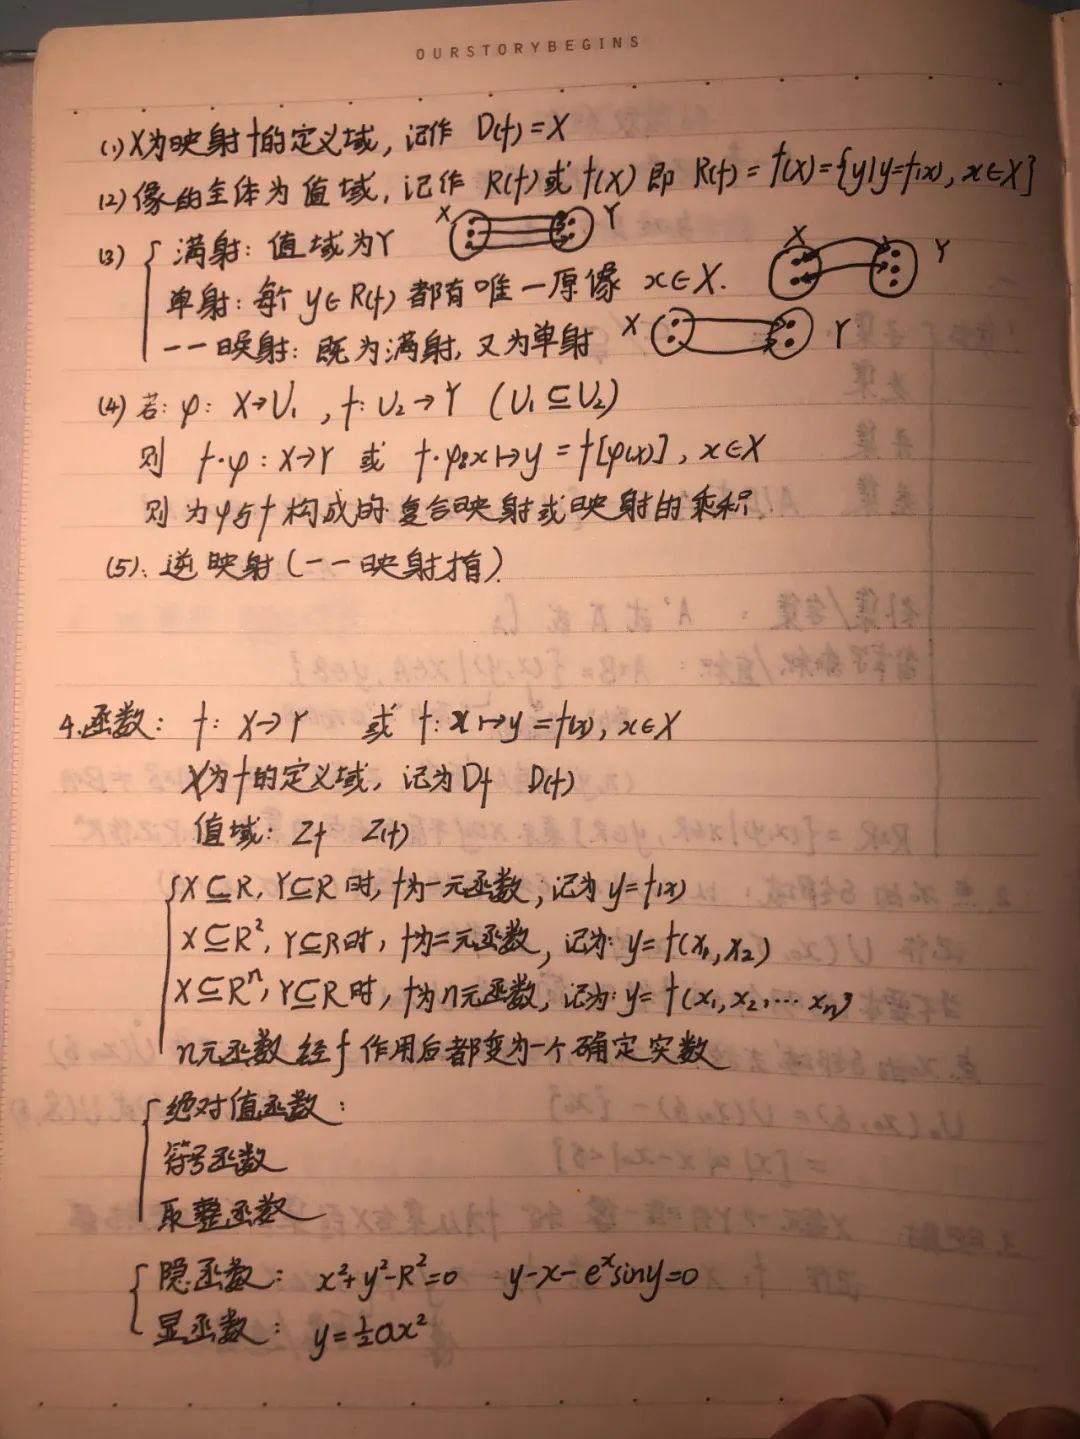 OURSTORYBEGINS
(1) X为映射f的定义域, 记作 D(f)=X
(2) 像的全体为值域, 记作 R(f)或 f(X) 即 R(f)=f(X)={y|y=f(x), x∈X}
(3) 满射: 值域为Y X Y
单射: 每个 y∈R(f) 都有唯一原像 x∈X. X Y
一一映射: 既为满射, 又为单射 X Y
(4) 若: φ: X→U₁, f: U₂→Y (U₁⊆U₂)
则 f·φ: X→Y 或 f·φ:x↦y=f[φ(x)], x∈X
则为φ与f构成的复合映射或映射的乘积
(5). 逆映射(一一映射才有).
4.函数: f: X→Y 或 f: x↦y=f(x), x∈X
X为f的定义域, 记为 Df D(f)
值域: Zf Z(f)
X⊆R, Y⊆R 时, f为一元函数, 记为 y=f(x)
X⊆R², Y⊆R时, f为二元函数, 记为: y=f(x₁,x₂)
X⊆Rⁿ, Y⊆R时, f为n元函数, 记为: y=f(x₁,x₂,…xₙ)
n元函数经f作用后都变为一个确定实数
绝对值函数:
符号函数
取整函数
隐函数: x²+y²-R²=0 y-x-eˣsiny=0
显函数: y=½ax²